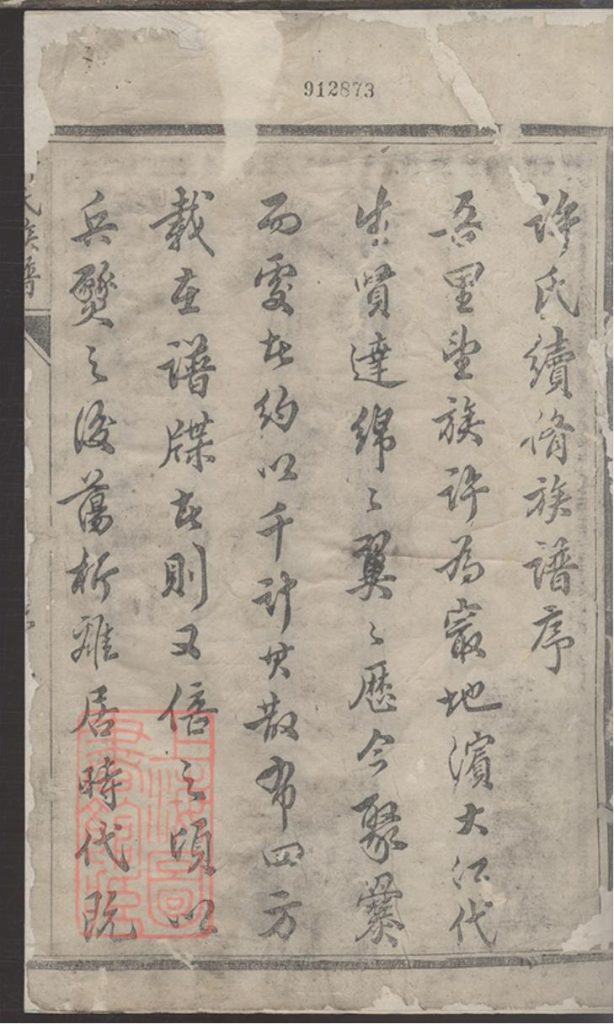 912873
許氏續脩族譜序
吾里望族許為最地濱大江代
出賢達綿〻翼〻歷今聚爨
而處者約以千計其散布四方
載在譜牒者則又倍之頃以
兵燹之後蕩析離居時代既
氏族譜
上海圖書館藏